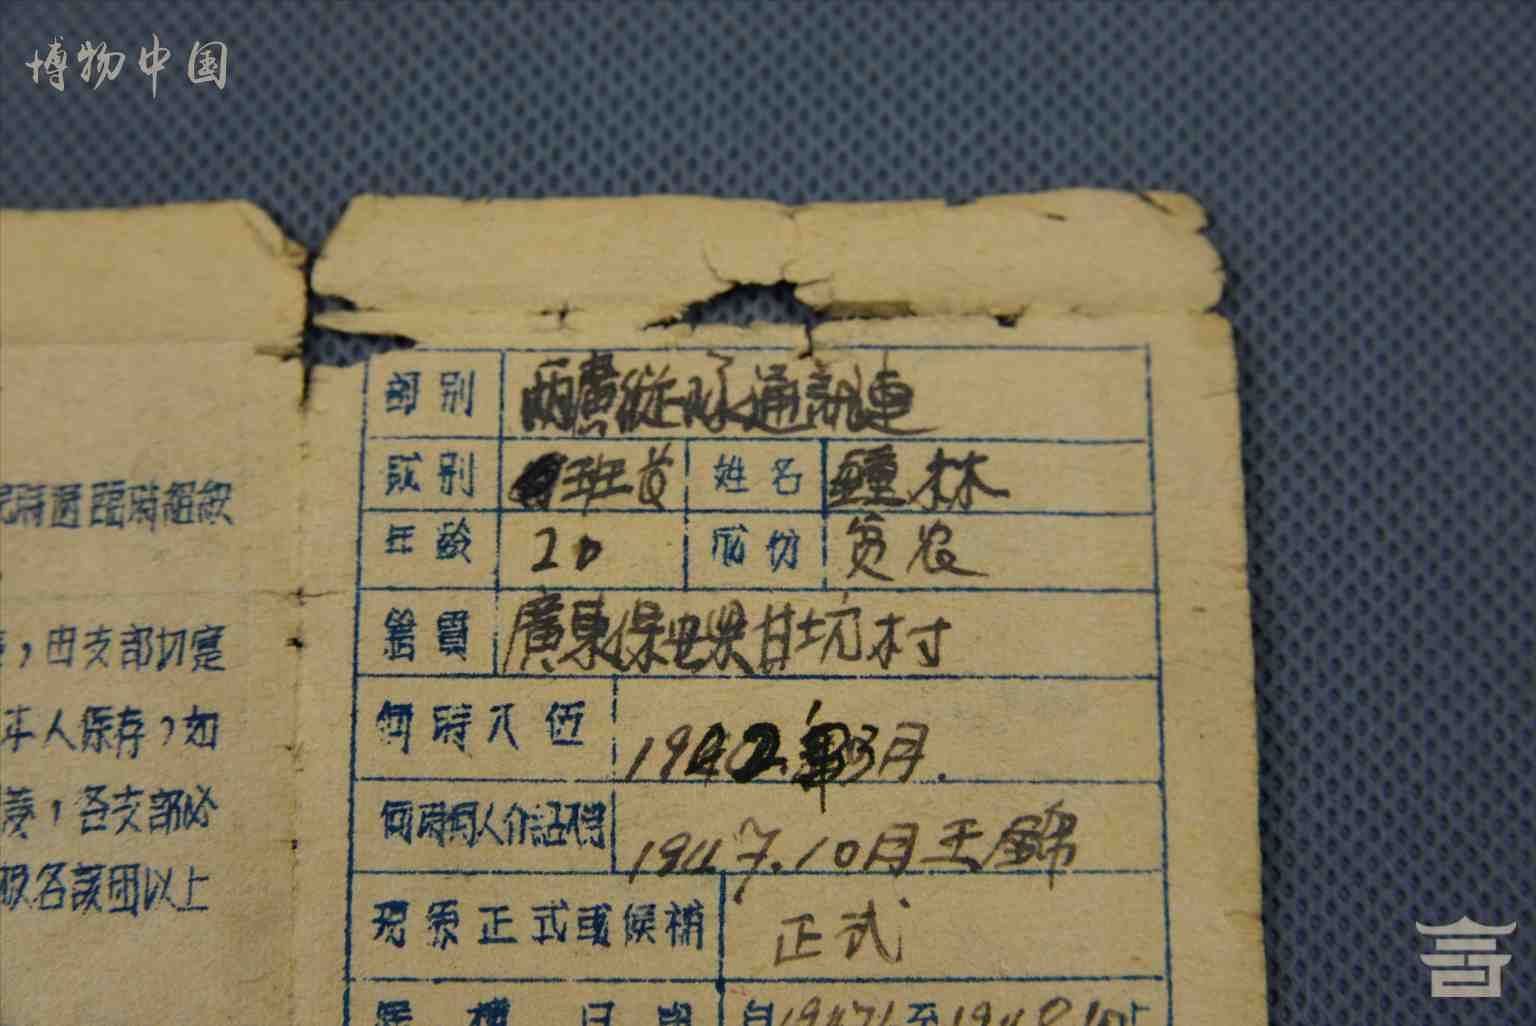 博物中国
部别 两廣纵队通訊連
职别 班长 姓名 鍾林
年齡 20 成份 贫农
籍貫 廣東保安県甘坑村
何時入伍 1942年3月.
何時何人介紹 1947.10月王锦
現原正式或候補 正式
日期 自1947 至194
時過臨時組織
,由支部切寔
本人保存,如
,各支部必
及各該團以上